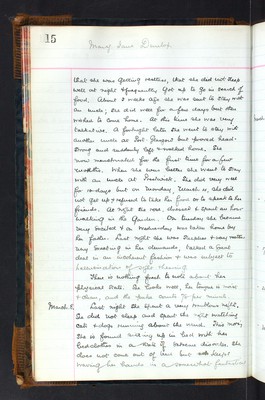 15
Mary Jane Dunlop
that she was getting restless, that she did not sleep
well at night & frequently got up to go in search of
food. About 3 weeks ago she was sent to stay with
an uncle; she did well for a few days but then
wished to come home. At this time she was very
talkative. A fortnight later she went to stay with
another uncle at Port Glasgow but proved head-
strong and suddenly left & walked home. She
now menstruated for the first time for a few
months. When she was better she went to stay
with an uncle at Prestwick. She did very well
for 10 days but on Monday, March 4, she did
not get up & refused to take her food or to speak to her
friends. At night she rose, dressed & spent an hour
walking in the garden. On Tuesday she became
very excited & on Wednesday was taken home by
her father. Last night she was sleepless & very noisy
very exacting in her demands, talked a great
deal in an incoherent fashion & was subject to
hallucinations of sight & hearing.
There is nothing fresh to note about her
physical state. She looks well, her tongue is moist
& clean, and the pulse counts 70 per minute.
March 8. Last night she spent a very restless night,
She did not sleep and spent the night watching
cats & dogs running about the ward. This morn.
she is found sitting up in bed with her
bedclothes in a state of extreme disorder, she
does not come out of bed but sits
waving her hands in a somewhat